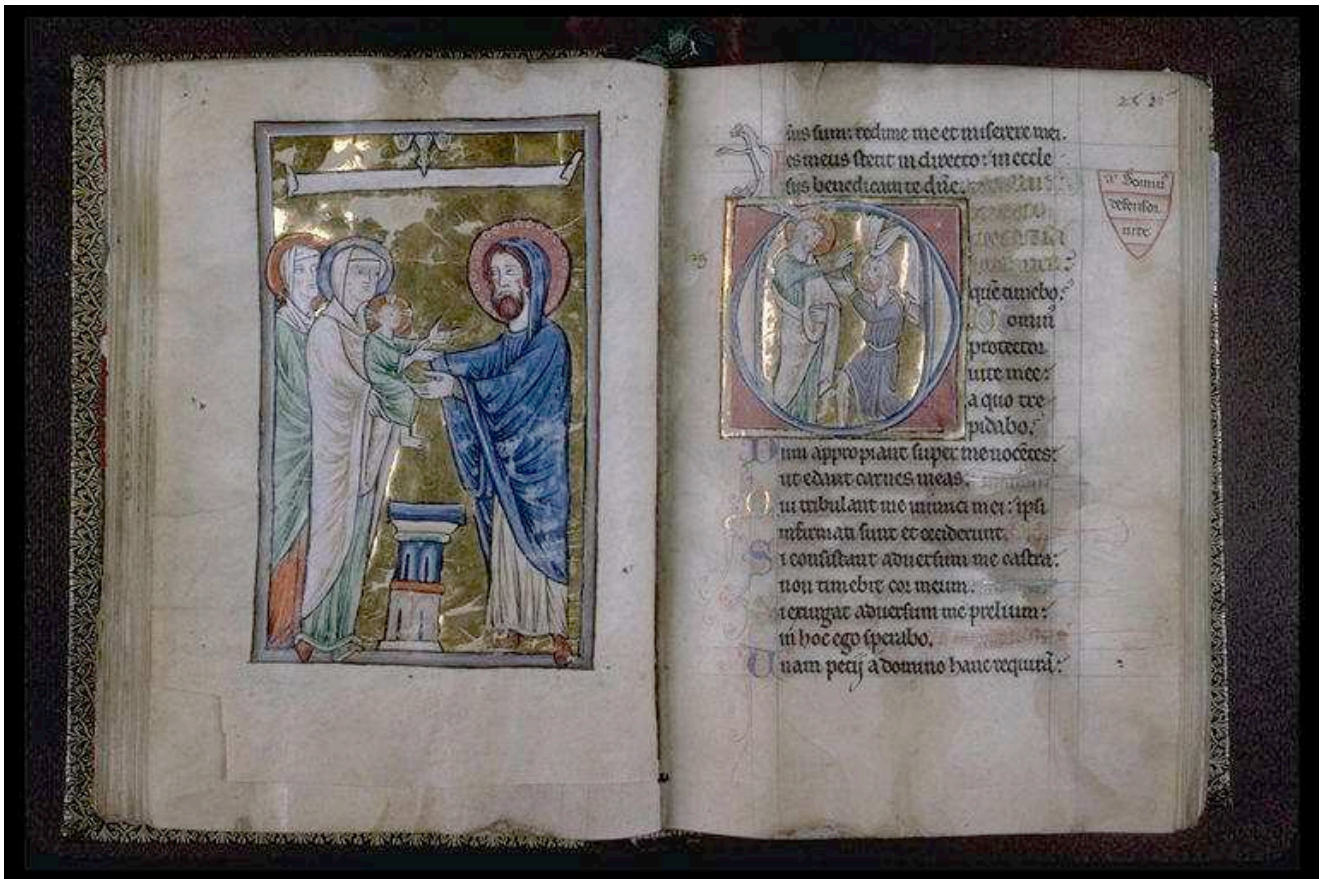 sum: redime me et miserere mei.
es meus stetit in directo: in eccle
sijs benedicam te dñe.
que timebo:
omini
protector
uite mee:
a quo tre
pidabo.
um appropiant super me nocẽtes:
ut edant carnes meas.
ui tribulant me inimici mei: ipsi
infirmati sunt et ceciderunt.
i consistant aduersum me castra:
non timebit cor meum.
i exurgat aduersum me prelium:
in hoc ego sperabo.
Unam petij a domino hanc requirã: